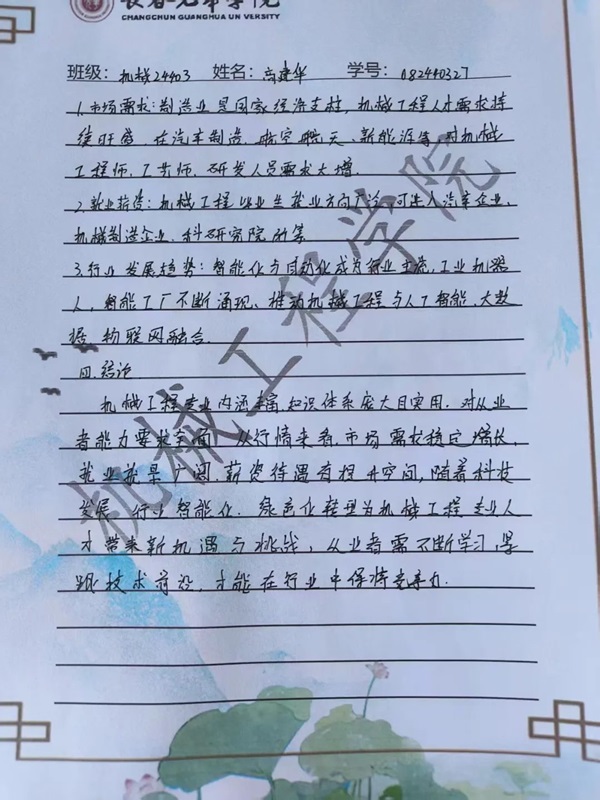 长春光华学院
CHANGCHUN GUANGHUA UNIVERSITY
班级: 机械24403 姓名: 高建华 学号: 082440327
1.市场需求:制造业是国家经济支柱,机械工程人才需求持
续旺盛,在汽车制造、航空航天、新能源等,对机械
工程师、工艺师、研发人员需求大增.
2.就业薪资:机械工程毕业生就业方向广泛,可进入汽车企业、
机械制造企业、科研究院所等
3.行业发展趋势:智能化与自动化成为行业主流,工业机器
人、智能工厂不断涌现、推动机械工程与人工智能、大数
据、物联网融合.
四.结论
机械工程专业内涵丰富,知识体系庞大且实用.对从业
者能力要求全面,从行情来看,市场需求稳定增长,
就业前景广阔,薪资待遇有提升空间,随着科技
发展,行业智能化、绿色化转型为机械工程专业人
才带来新机遇与挑战,从业者需不断学习,紧
跟技术前沿,才能在行业中保持竞争力.
机械工程学院